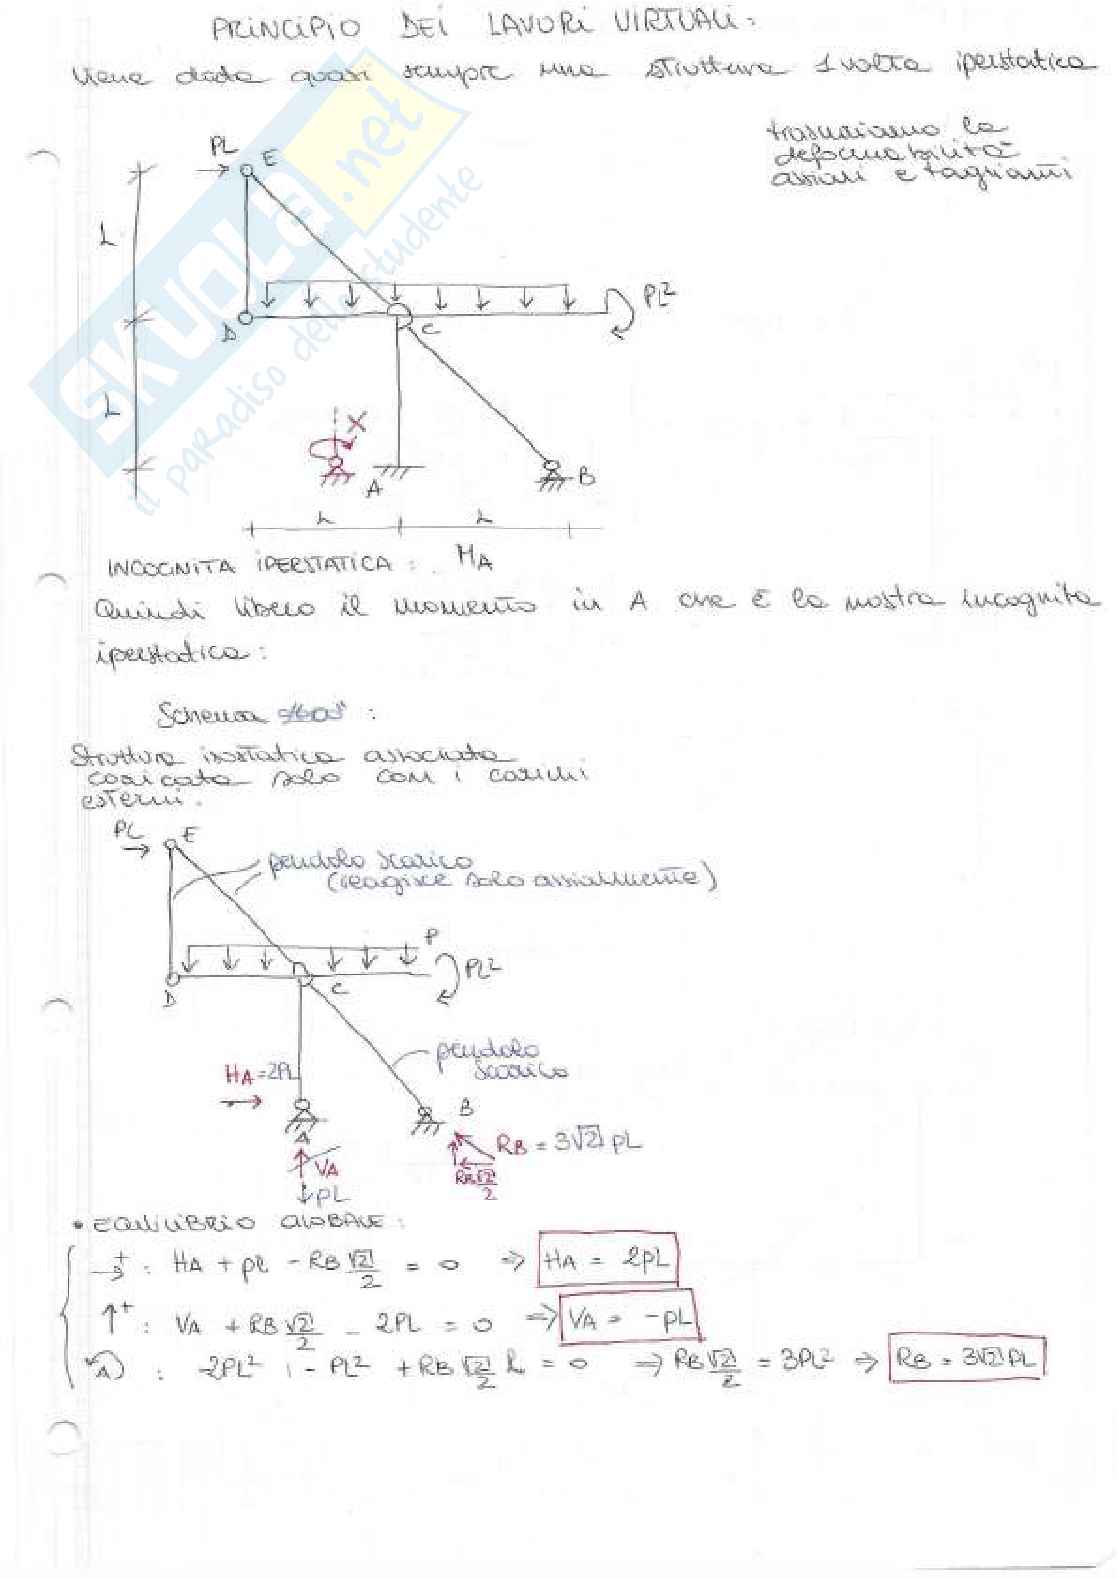 PRINCIPIO DEI LAVORI VIRTUALI:
Viene data quasi sempre una struttura 1 volta iperstatica
trascuriamo la
deformabilità
assiali e taglianti
PL
E
L
D
C
PL²
L
X
A
B
L
L
SKUOLA.net
il paradiso dello studente
INCOGNITA IPERSTATICA: MA
Quindi libero il momento in A che è la nostra incognita
iperstatica:
Schema "0":
Struttura isostatica associata
caricata solo con i carichi
esterni.
PL
E
pendolo scarico
(reagisce solo assialmente)
P
PL²
D
C
pendolo
scarico
HA=2PL
A
B
RB = 3√2 PL
VA
RB √2/2
PL
• EQUILIBRIO GLOBALE:
→+ : HA + PL - RB √2/2 = 0 ⇒ HA = 2PL
↑+ : VA + RB √2/2 - 2PL = 0 ⇒ VA = -PL
A) : 2PL² - PL² + RB √2/2 L = 0 ⇒ RB √2/2 = 3PL² ⇒ RB = 3√2 PL